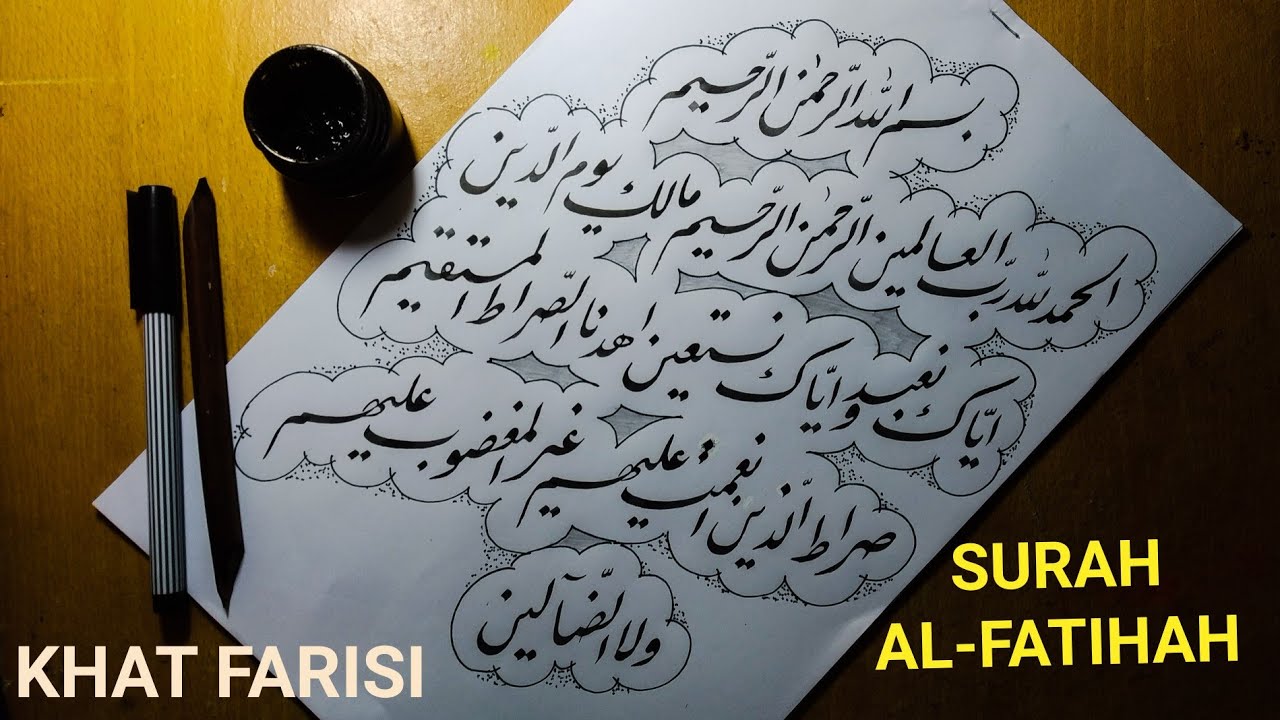 بسم الله الرّحمٰن الرّحيم
الحمد لله ربّ العالمين الرّحمٰن الرّحيم مالك يوم الدّين
ايّاك نعبد وايّاك نستعين اهدنا الصّراط المستقيم
صراط الّذين انعمت عليهم غير المغضوب عليهم
ولا الضّآلين
SURAH
AL-FATIHAH
KHAT FARISI